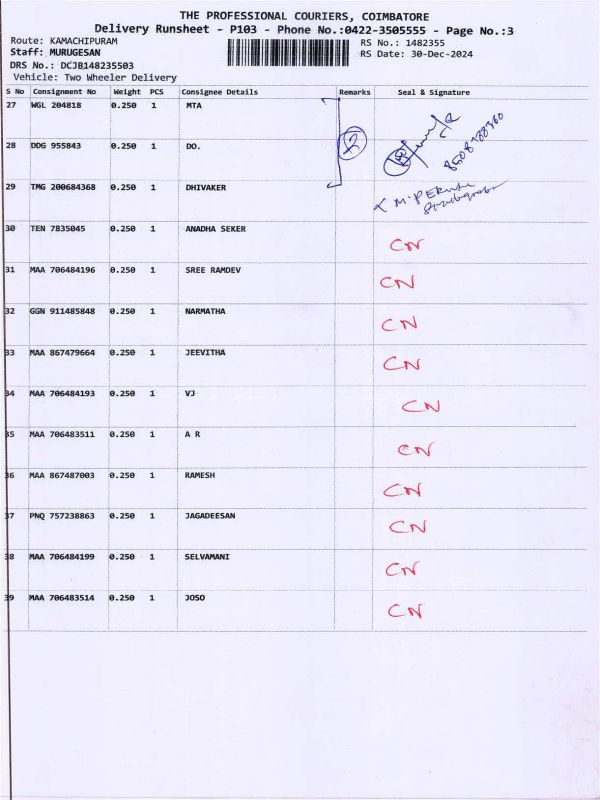 THE PROFESSIONAL COURIERS, COIMBATORE
Delivery Runsheet - P103 - Phone No.:0422-3505555 - Page No.:3
Route: KAMACHIPURAM RS No.: 1482355
Staff: MURUGESAN RS Date: 30-Dec-2024
DRS No.: DCJB148235503
Vehicle: Two Wheeler Delivery
S No Consignment No Weight PCS Consignee Details Remarks Seal & Signature
27 WGL 204818 0.250 1 MTA
28 DDG 955843 0.250 1 DO.
29 TMG 200684368 0.250 1 DHIVAKER
30 TEN 7835045 0.250 1 ANADHA SEKER CN
31 MAA 706484196 0.250 1 SREE RAMDEV CN
32 GGN 911485848 0.250 1 NARMATHA CN
33 MAA 867479664 0.250 1 JEEVITHA CN
34 MAA 706484193 0.250 1 VJ CN
35 MAA 706483511 0.250 1 A R CN
36 MAA 867487003 0.250 1 RAMESH CN
37 PNQ 757238863 0.250 1 JAGADEESAN CN
38 MAA 706484199 0.250 1 SELVAMANI CN
39 MAA 706483514 0.250 1 JOSO CN